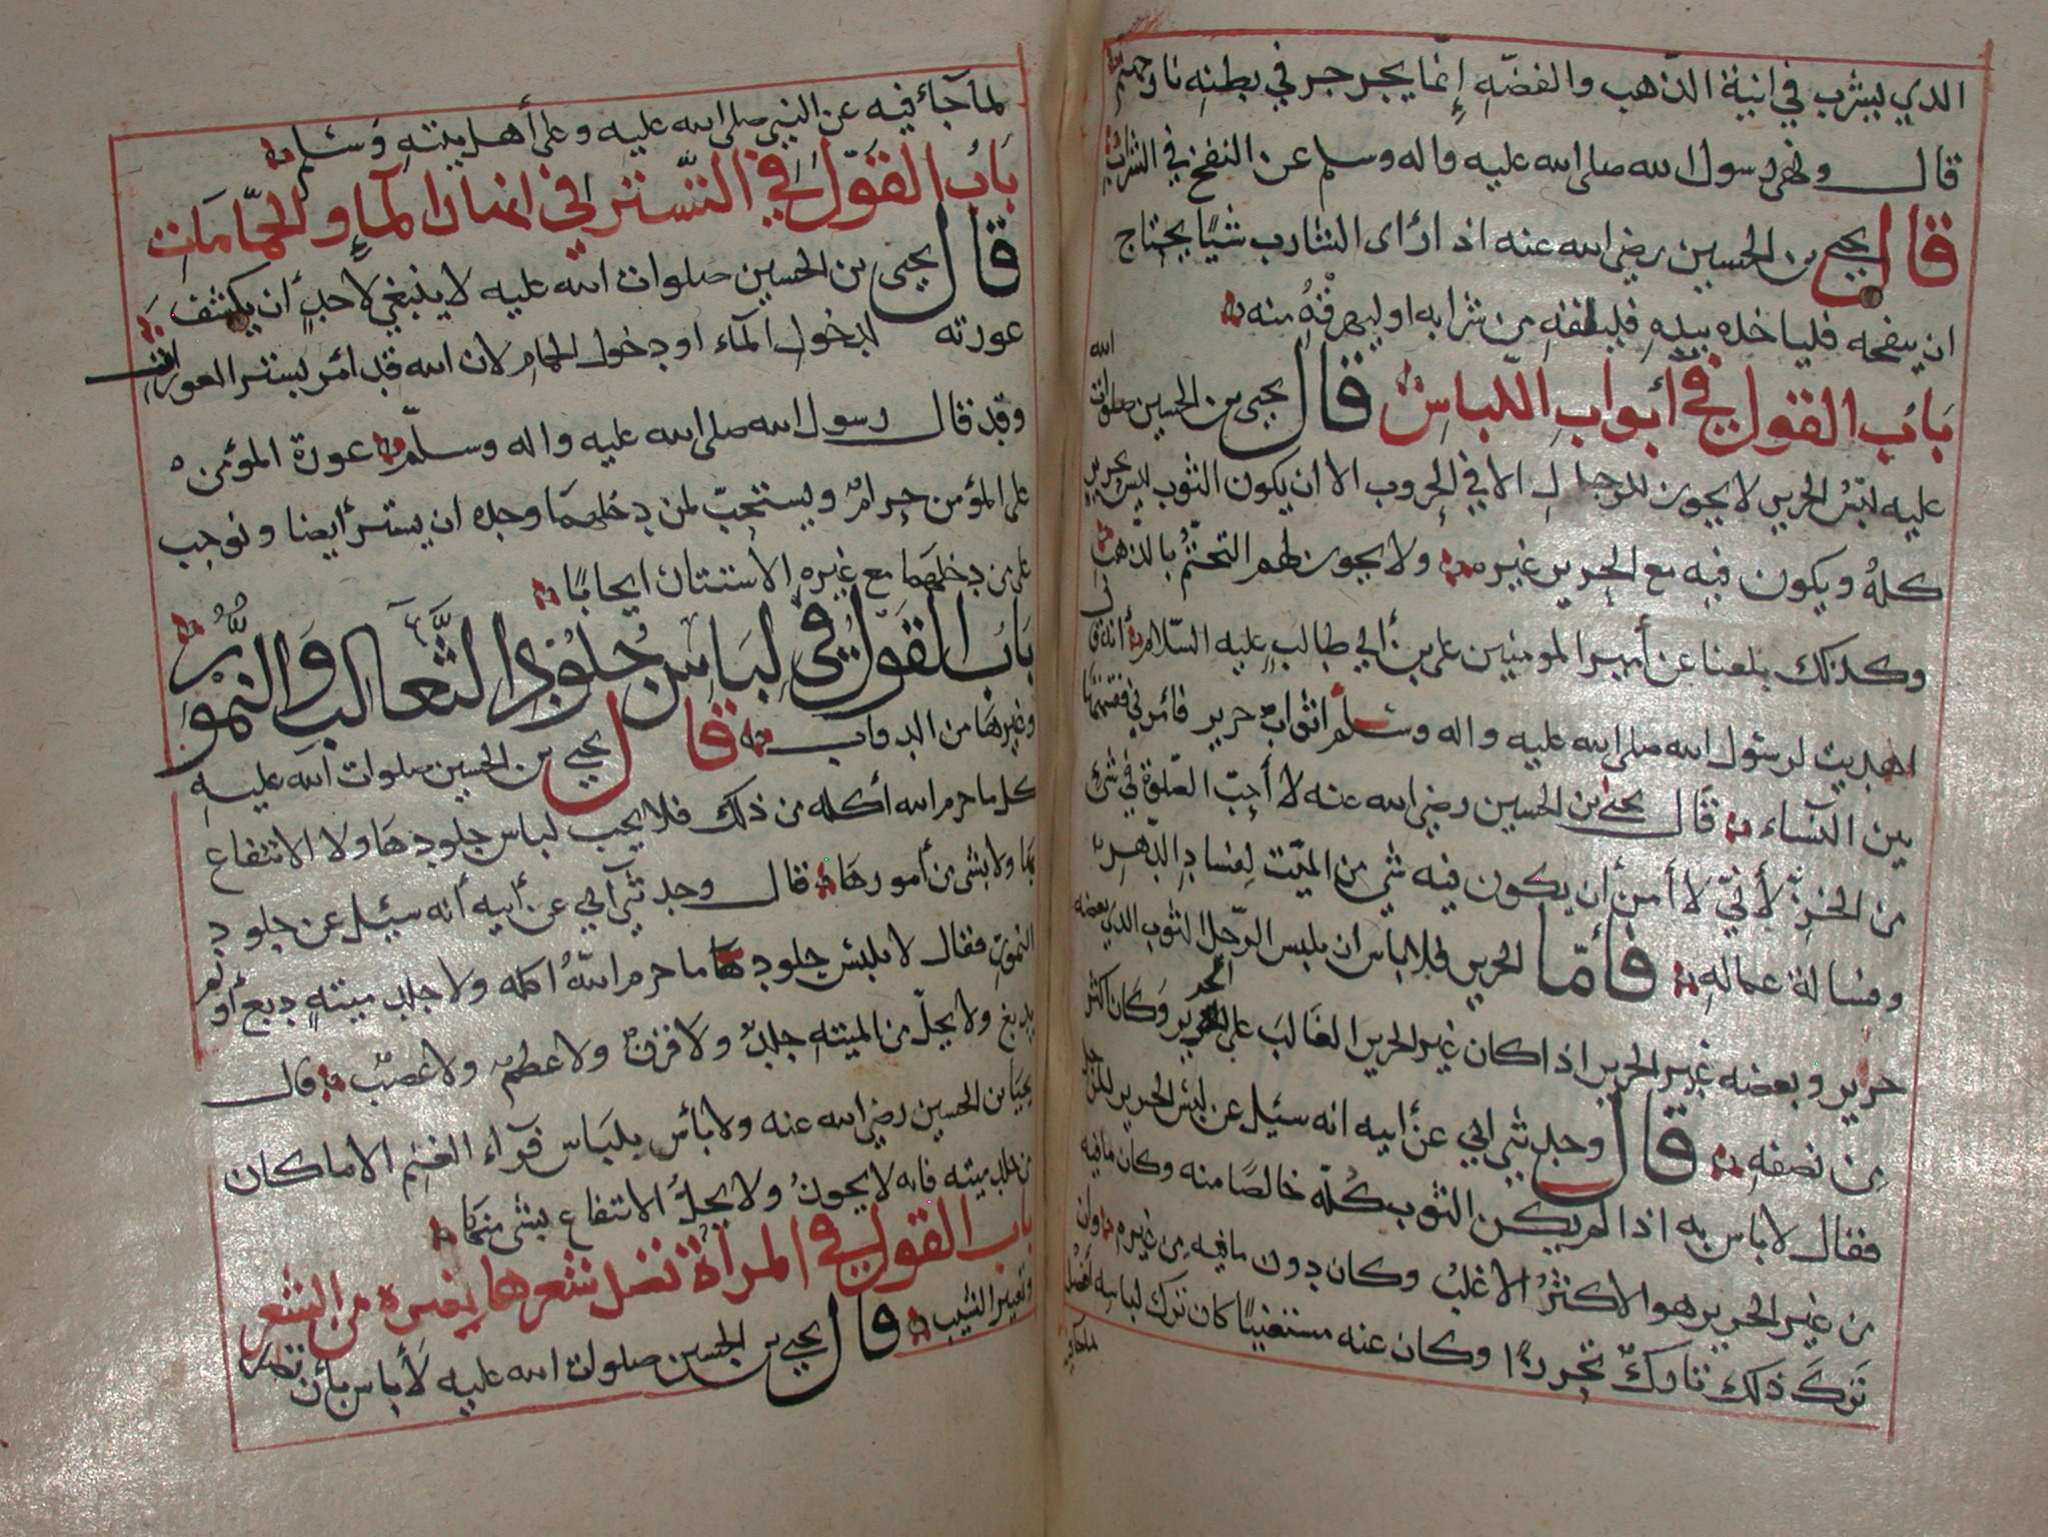 الذي يشرب في انية الذهب والفضّه إنما يجرجر في بطنه نار جهنم
قال ونهى رسول الله صلى الله عليه واله وسلم عن النفخ في الشراب
قال يحيى بن الحسين رضي الله عنه اذا رأى الشارب شيًا يحتاج
ان ينفخه فلياخذه بيده فليلقه من شرابه او ليهرقه منه
بَابُ القول في أبواب اللباس قال يحيى بن الحسين صلوات الله
عليه لبس الحرير لا يجوز للرجال الا في الحروب الا ان يكون الثوب ليس بحرير
كله ويكون فيه مع الحرير غيره ولا يجوز لهم التختّم بالذهب
وكذلك بلغنا عن أمير المومنين علي بن أبي طالب عليه السلام أنه قال
اهديت لرسول الله صلى الله عليه واله وسلم اثواب حرير فأمرني فقسمتها
بين النساء قال يحيى بن الحسين رضي الله عنه لا أحبّ الصلوة في شيء
من الخز لأني لا أمن أن يكون فيه شي من الميّت لفساد الدهر
وفسالة عماله فأمّا الحرير فلا باس ان يلبس الرّجل الثوب الذي بعضه
حرير وبعضه غير الحرير اذا كان غير الحرير الغالب على الحرير وكان اكثر
من نصفه قال وحدثني ابي عن أبيه انه سئل عن لبس الحرير للرجل
فقال لا باس به اذا لم يكن الثوب كلّه خالصًا منه وكان ما فيه
من غير الحرير هو الاكثرُ الاغلبُ وكان دون ما فيه من غيره وان
ترك ذلك تاركٌ تحرزًا وكان عنه مستغنيًا كان ترك لباسه أفضل
لما جآء فيه عن النبي صلى الله عليه وعلى أهل بيته وسلم
بَابُ القول في التَّستر في انهار المآء والحمّامات
قال يحيى بن الحسين صلوات الله عليه لا ينبغي لاحدٍ أن يكشف
عورته لدخول المآء او دخول الحمام لان الله قد أمر بستر العورات
وقد قال رسول الله صلى الله عليه واله وسلّم عورة المؤمن
على المؤمن حرامٌ ويستحبّ لمن دخلهما وحده ان يستتر أيضا ونوجب
على من دخلهما مع غيره الاستتار ايجابًا
بَابُ القول في لباس جلود الثَّعالب والنُّمور
وغيرها من الدواب قال يحيى بن الحسين صلوات الله عليه
كل ما حرم الله أكله من ذلك فلا يجب لباس جلودها ولا الانتفاع
بها ولا بشي من أمورها قال وحدثني ابي عن أبيه أنه سئل عن جلود
النمور فقال لا يلبس جلود ما حرم اللهُ اكله ولا جلد ميتةٍ دبغ أو لم
يدبغ ولا يحلّ من الميته جلدٌ ولا قرنٌ ولا عظمٌ ولا عصبٌ قال
يحيا بن الحسين رضي الله عنه ولا بأس بلباس فرآء الغنم الا ما كان
من جلد ميته فانه لا يجوز ولا يحلُّ الانتفاع بشي منها
باب القول في المرأة تصل شعرها بغيره من الشعر
وتغيير الشيب قال يحيى بن الحسين صلوات الله عليه لأباس بأن تصل